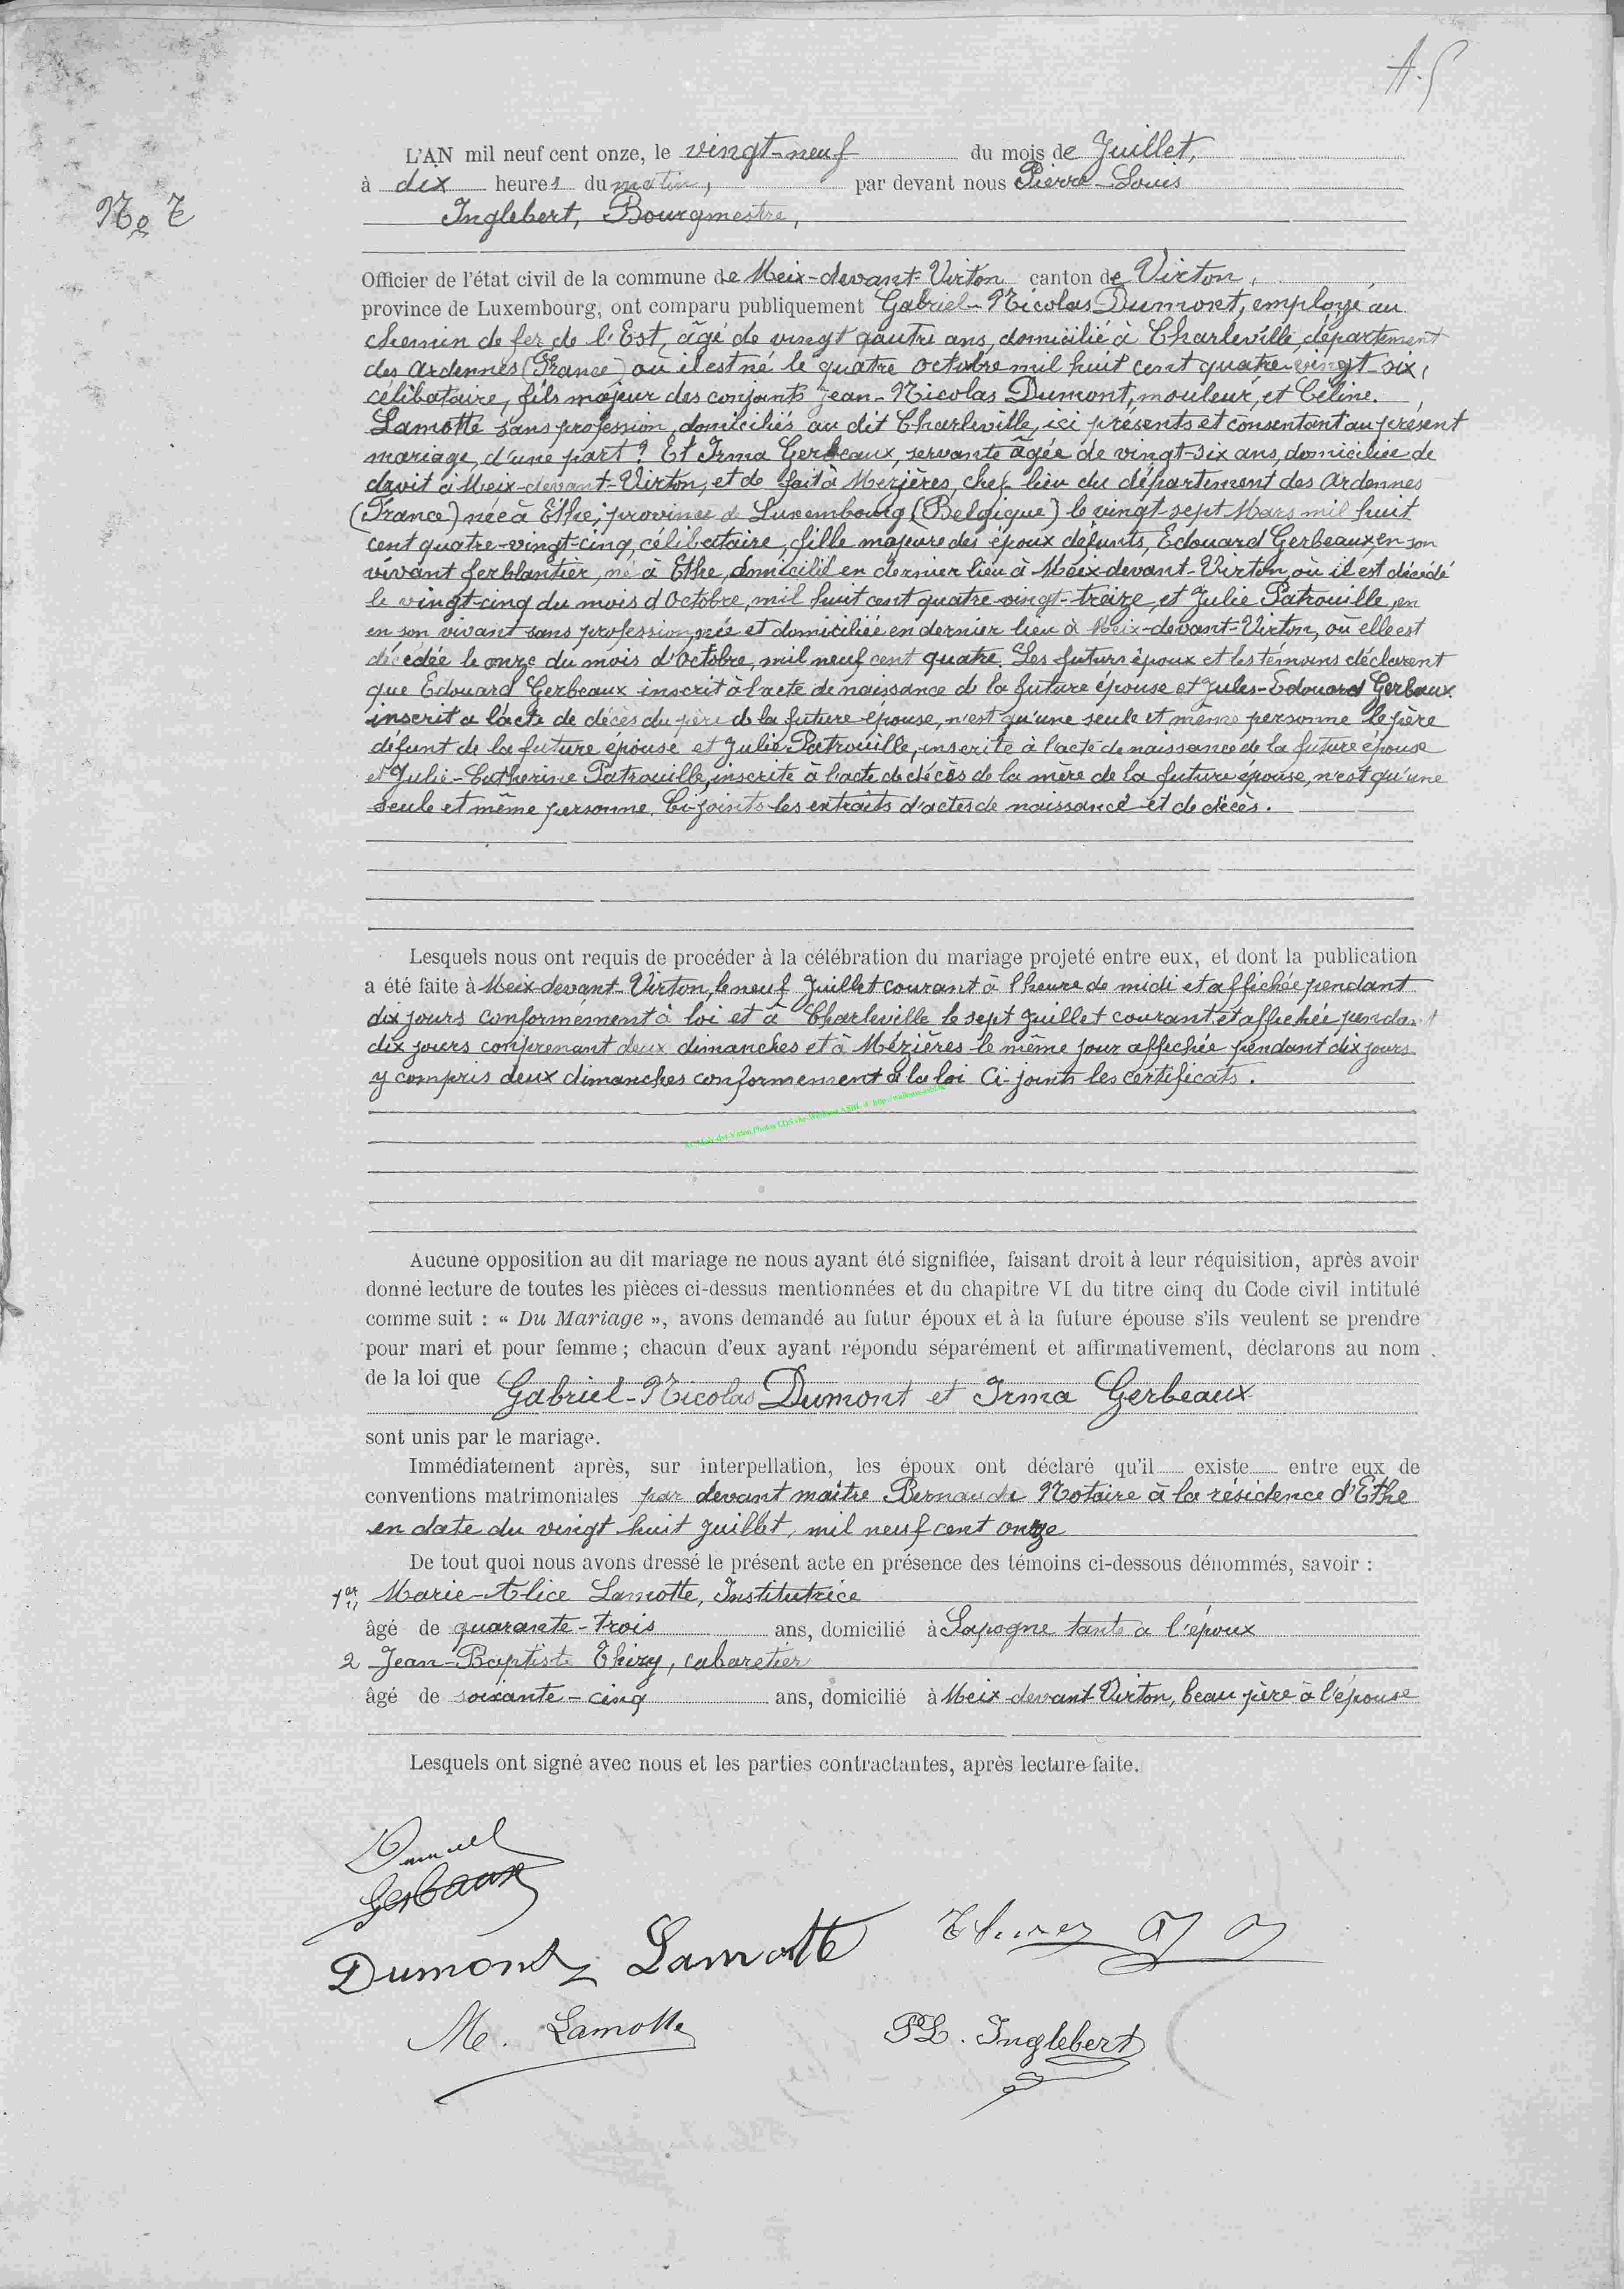 A. 5
L'AN mil neuf cent onze, le vingt-neuf du mois de Juillet,
à dix heures du matin, par devant nous Pierre-Louis
No 7
Inglebert, Bourgmestre,
Officier de l'état civil de la commune de Meix-devant-Virton canton de Virton,
province de Luxembourg, ont comparu publiquement Gabriel-Nicolas Dumont, employé au
chemin de fer de l'Est, âgé de vingt quatre ans, domicilié à Charleville, département
des Ardennes (France) où il est né le quatre octobre mil huit cent quatre-vingt-six,
célibataire, fils majeur des conjoints Jean-Nicolas Dumont, mouleur, et Céline
Lamotte sans profession, domiciliés au dit Charleville, ici présents et consentant au présent
mariage, d'une part ? Et Irma Gerbeaux, servante âgée de vingt-six ans, domiciliée de
droit à Meix-devant-Virton, et de fait à Mezières, chef lieu du département des Ardennes
(France) née à Ethe, province de Luxembourg (Belgique) le vingt-sept Mars mil huit
cent quatre-vingt-cinq, célibataire, fille majeure des époux défunts, Edouard Gerbeaux, en son
vivant ferblantier, né à Ethe, domicilié en dernier lieu à Meix-devant-Virton, où il est décédé
le vingt-cinq du mois d'Octobre, mil huit cent quatre-vingt-treize, et Julie Patrouille, en
en son vivant sans profession, née et domiciliée en dernier lieu à Meix-devant-Virton, où elle est
décédée le onze du mois d'Octobre, mil neuf cent quatre. Les futurs époux et les témoins déclarent
que Edouard Gerbeaux inscrit à l'acte de naissance de la future épouse et Jules-Edouard Gerbaux
inscrit a l'acte de décès du père de la future épouse, n'est qu'une seule et même personne le père
défunt de la future épouse et Julie Patrouille, inscrite à l'acte de naissance de la future épouse
et Julie-Catherine Patrouille, inscrite à l'acte de décès de la mère de la future épouse, n'est qu'une
seule et même personne. Ci-joints les extraits d'actes de naissance et de décès.
Lesquels nous ont requis de procéder à la célébration du mariage projeté entre eux, et dont la publication
a été faite à Meix-devant-Virton, le neuf Juillet courant à l'heure de midi et affichée pendant
dix jours conformément a loi et à Charleville le sept Juillet courant et affichée pendant
dix jours comprenant deux dimanches et à Mézières le même jour affichée pendant dix jours
y compris deux dimanches conformement à la loi Ci-joints les certificats.
Aucune opposition au dit mariage ne nous ayant été signifiée, faisant droit à leur réquisition, après avoir
donné lecture de toutes les pièces ci-dessus mentionnées et du chapitre VI du titre cinq du Code civil intitulé
comme suit : « Du Mariage », avons demandé au futur époux et à la future épouse s'ils veulent se prendre
pour mari et pour femme ; chacun d'eux ayant répondu séparément et affirmativement, déclarons au nom
de la loi que Gabriel-Nicolas Dumont et Irma Gerbeaux
sont unis par le mariage.
Immédiatement après, sur interpellation, les époux ont déclaré qu'il existe entre eux de
conventions matrimoniales par devant maître Notaire à la résidence d'Ethe
en date du vingt huit Juillet, mil neuf cent onze
De tout quoi nous avons dressé le présent acte en présence des témoins ci-dessous dénommés, savoir :
1er Marie-Alice Lamotte, Institutrice
âgé de quarante-trois ans, domicilié à Sapogne tante a l'époux
2 Jean-Baptiste Thiry, cabaretier
âgé de soixante-cinq ans, domicilié à Meix-devant-Virton, beau père à l'épouse
Lesquels ont signé avec nous et les parties contractantes, après lecture faite.
Gerbaux
Dumont Lamotte
M. Lamotte PL. Inglebert